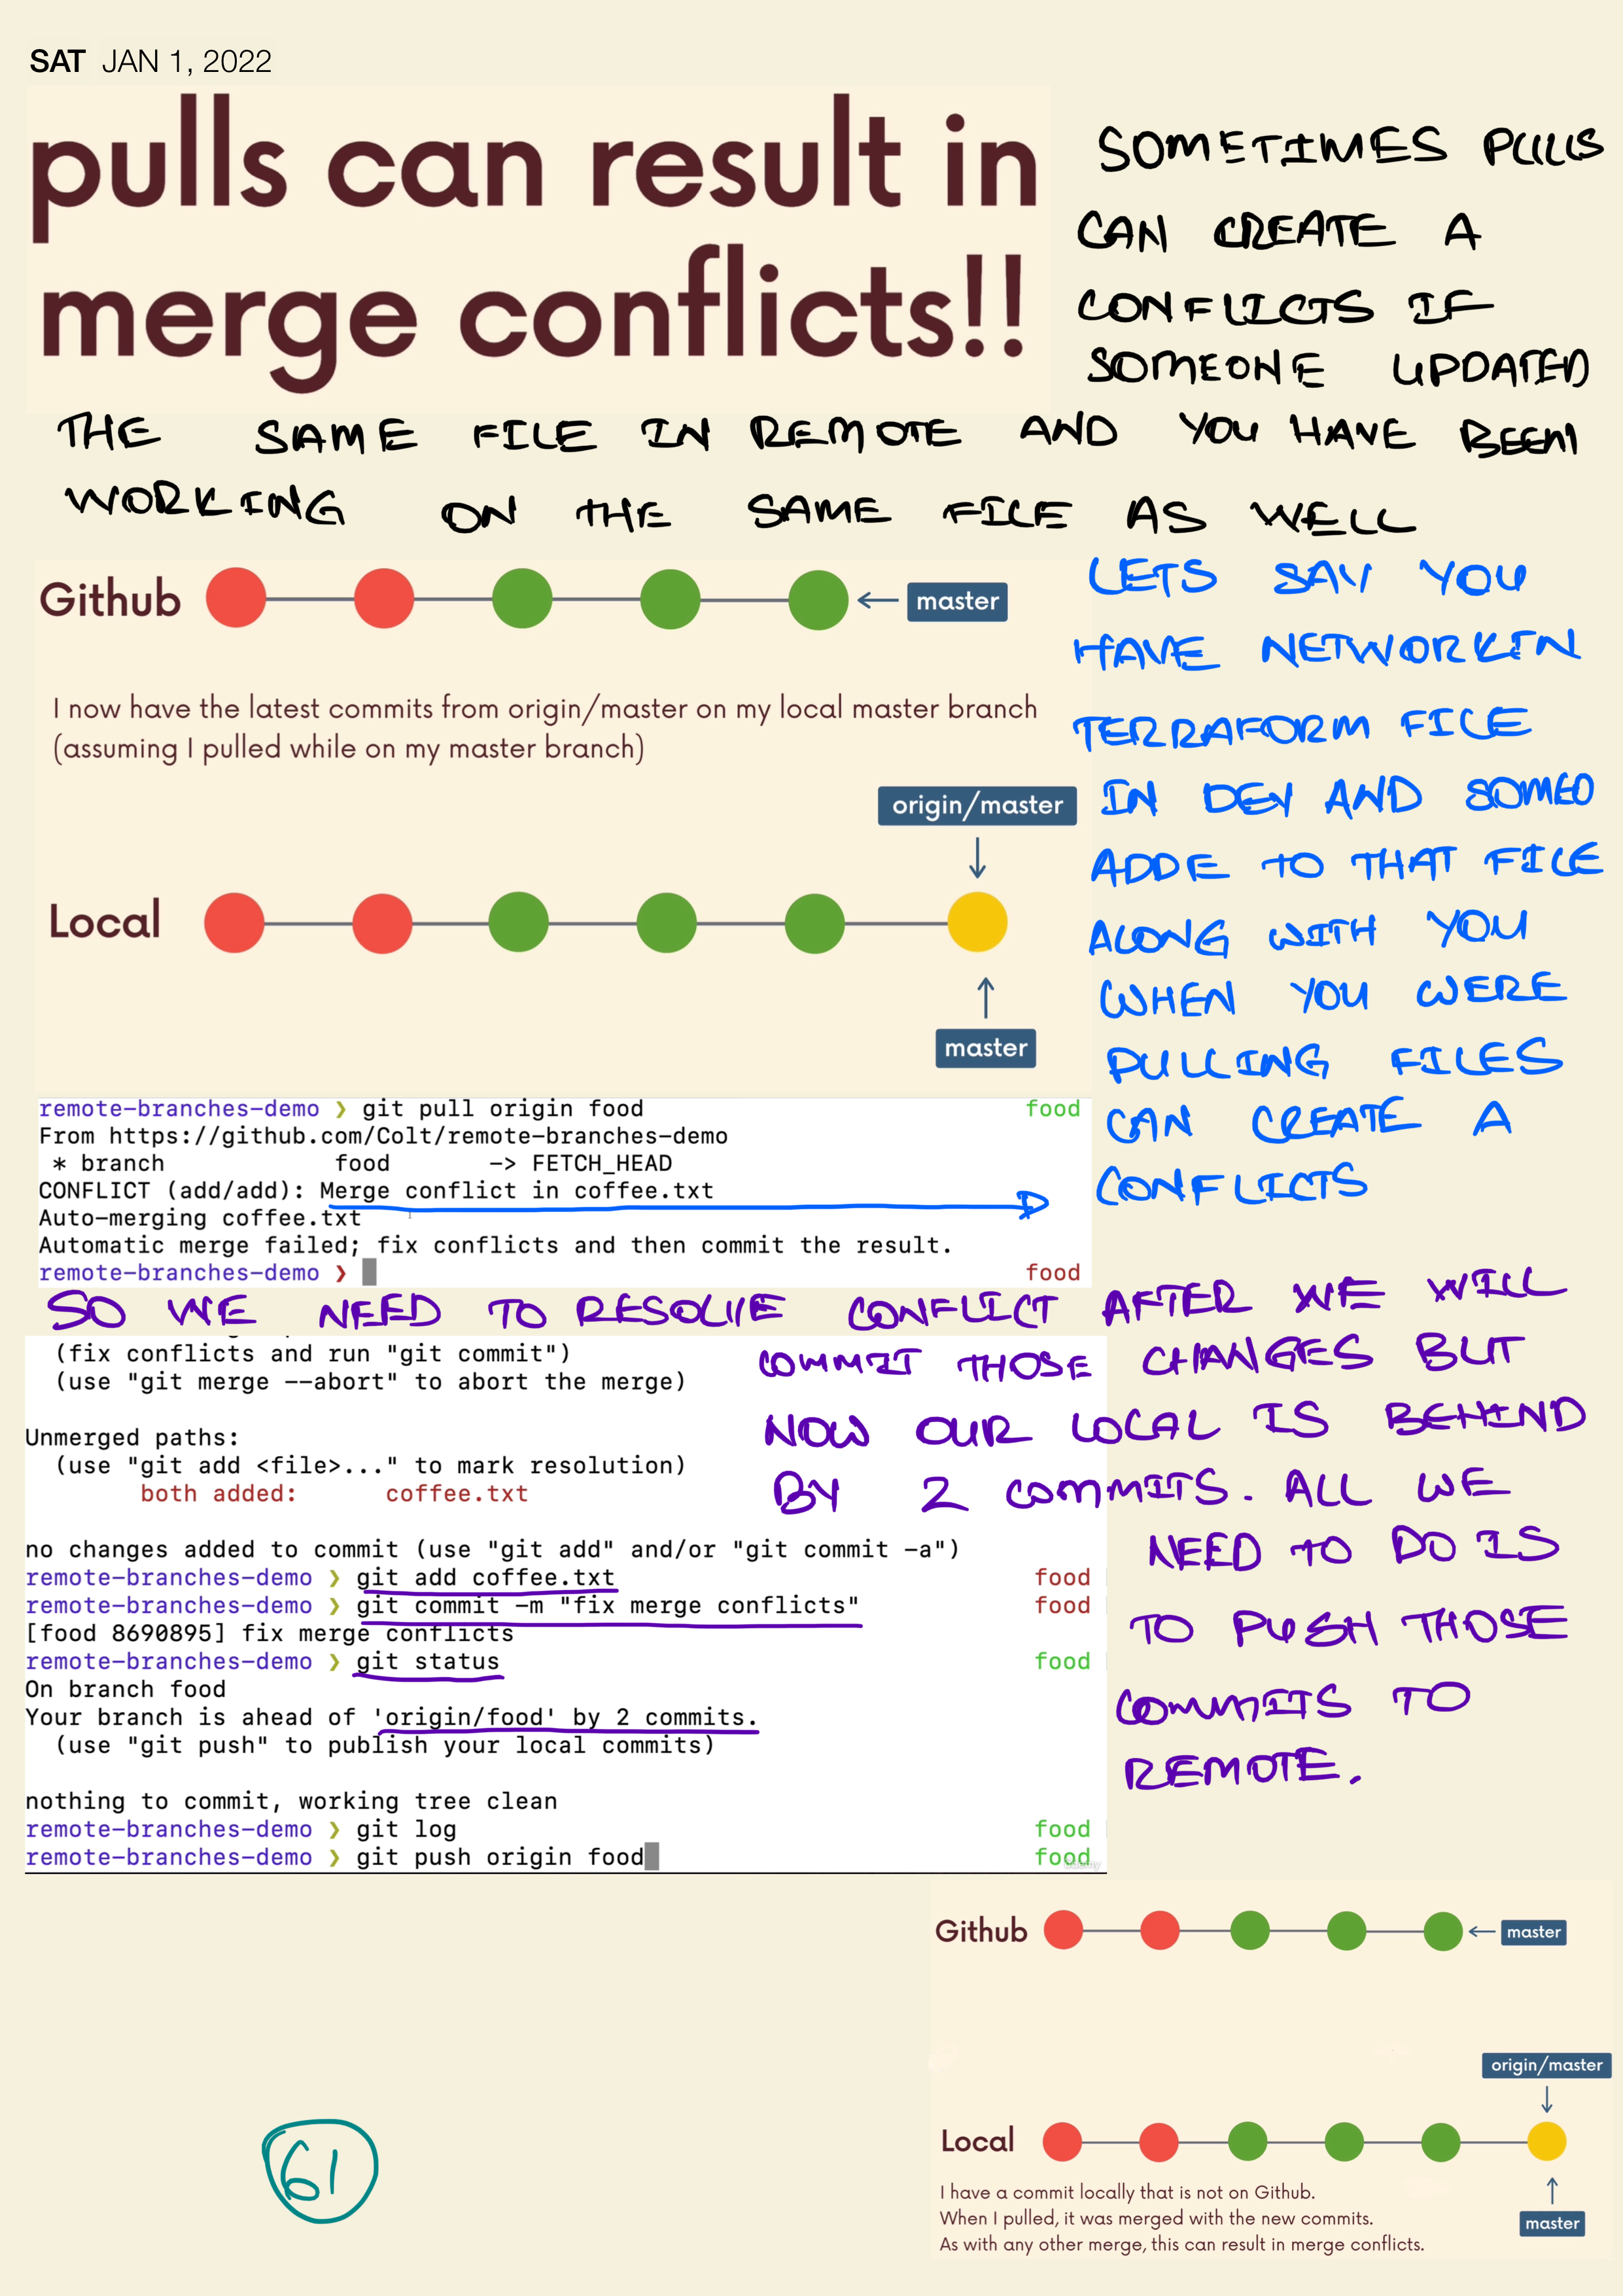 SAT JAN 1, 2022
pulls can result in
merge conflicts!!
SOMETIMES PULLS
CAN CREATE A
CONFLICTS IF
SOMEONE UPDATED
THE SAME FILE IN REMOTE AND YOU HAVE BEEN
WORKING ON THE SAME FILE AS WELL
Github
master
I now have the latest commits from origin/master on my local master branch
(assuming I pulled while on my master branch)
origin/master
Local
master
LETS SAY YOU
HAVE NETWORKIN
TERRAFORM FILE
IN DEV AND SOMEO
ADDE TO THAT FILE
ALONG WITH YOU
WHEN YOU WERE
PULLING FILES
CAN CREATE A
CONFLICTS
remote-branches-demo ❯ git pull origin food food
From https://github.com/Colt/remote-branches-demo
* branch food -> FETCH_HEAD
CONFLICT (add/add): Merge conflict in coffee.txt
Auto-merging coffee.txt
Automatic merge failed; fix conflicts and then commit the result.
remote-branches-demo ❯ food
SO WE NEED TO RESOLVE CONFLICT AFTER WE WILL
COMMIT THOSE CHANGES BUT
NOW OUR LOCAL IS BEHIND
BY 2 COMMITS. ALL WE
NEED TO DO IS
TO PUSH THOSE
COMMITS TO
REMOTE.
(fix conflicts and run "git commit")
(use "git merge --abort" to abort the merge)
Unmerged paths:
(use "git add <file>..." to mark resolution)
both added: coffee.txt
no changes added to commit (use "git add" and/or "git commit -a")
remote-branches-demo ❯ git add coffee.txt food
remote-branches-demo ❯ git commit -m "fix merge conflicts" food
[food 8690895] fix merge conflicts
remote-branches-demo ❯ git status food
On branch food
Your branch is ahead of 'origin/food' by 2 commits.
(use "git push" to publish your local commits)
nothing to commit, working tree clean
remote-branches-demo ❯ git log food
remote-branches-demo ❯ git push origin food food
Github
master
origin/master
Local
master
I have a commit locally that is not on Github.
When I pulled, it was merged with the new commits.
As with any other merge, this can result in merge conflicts.
61